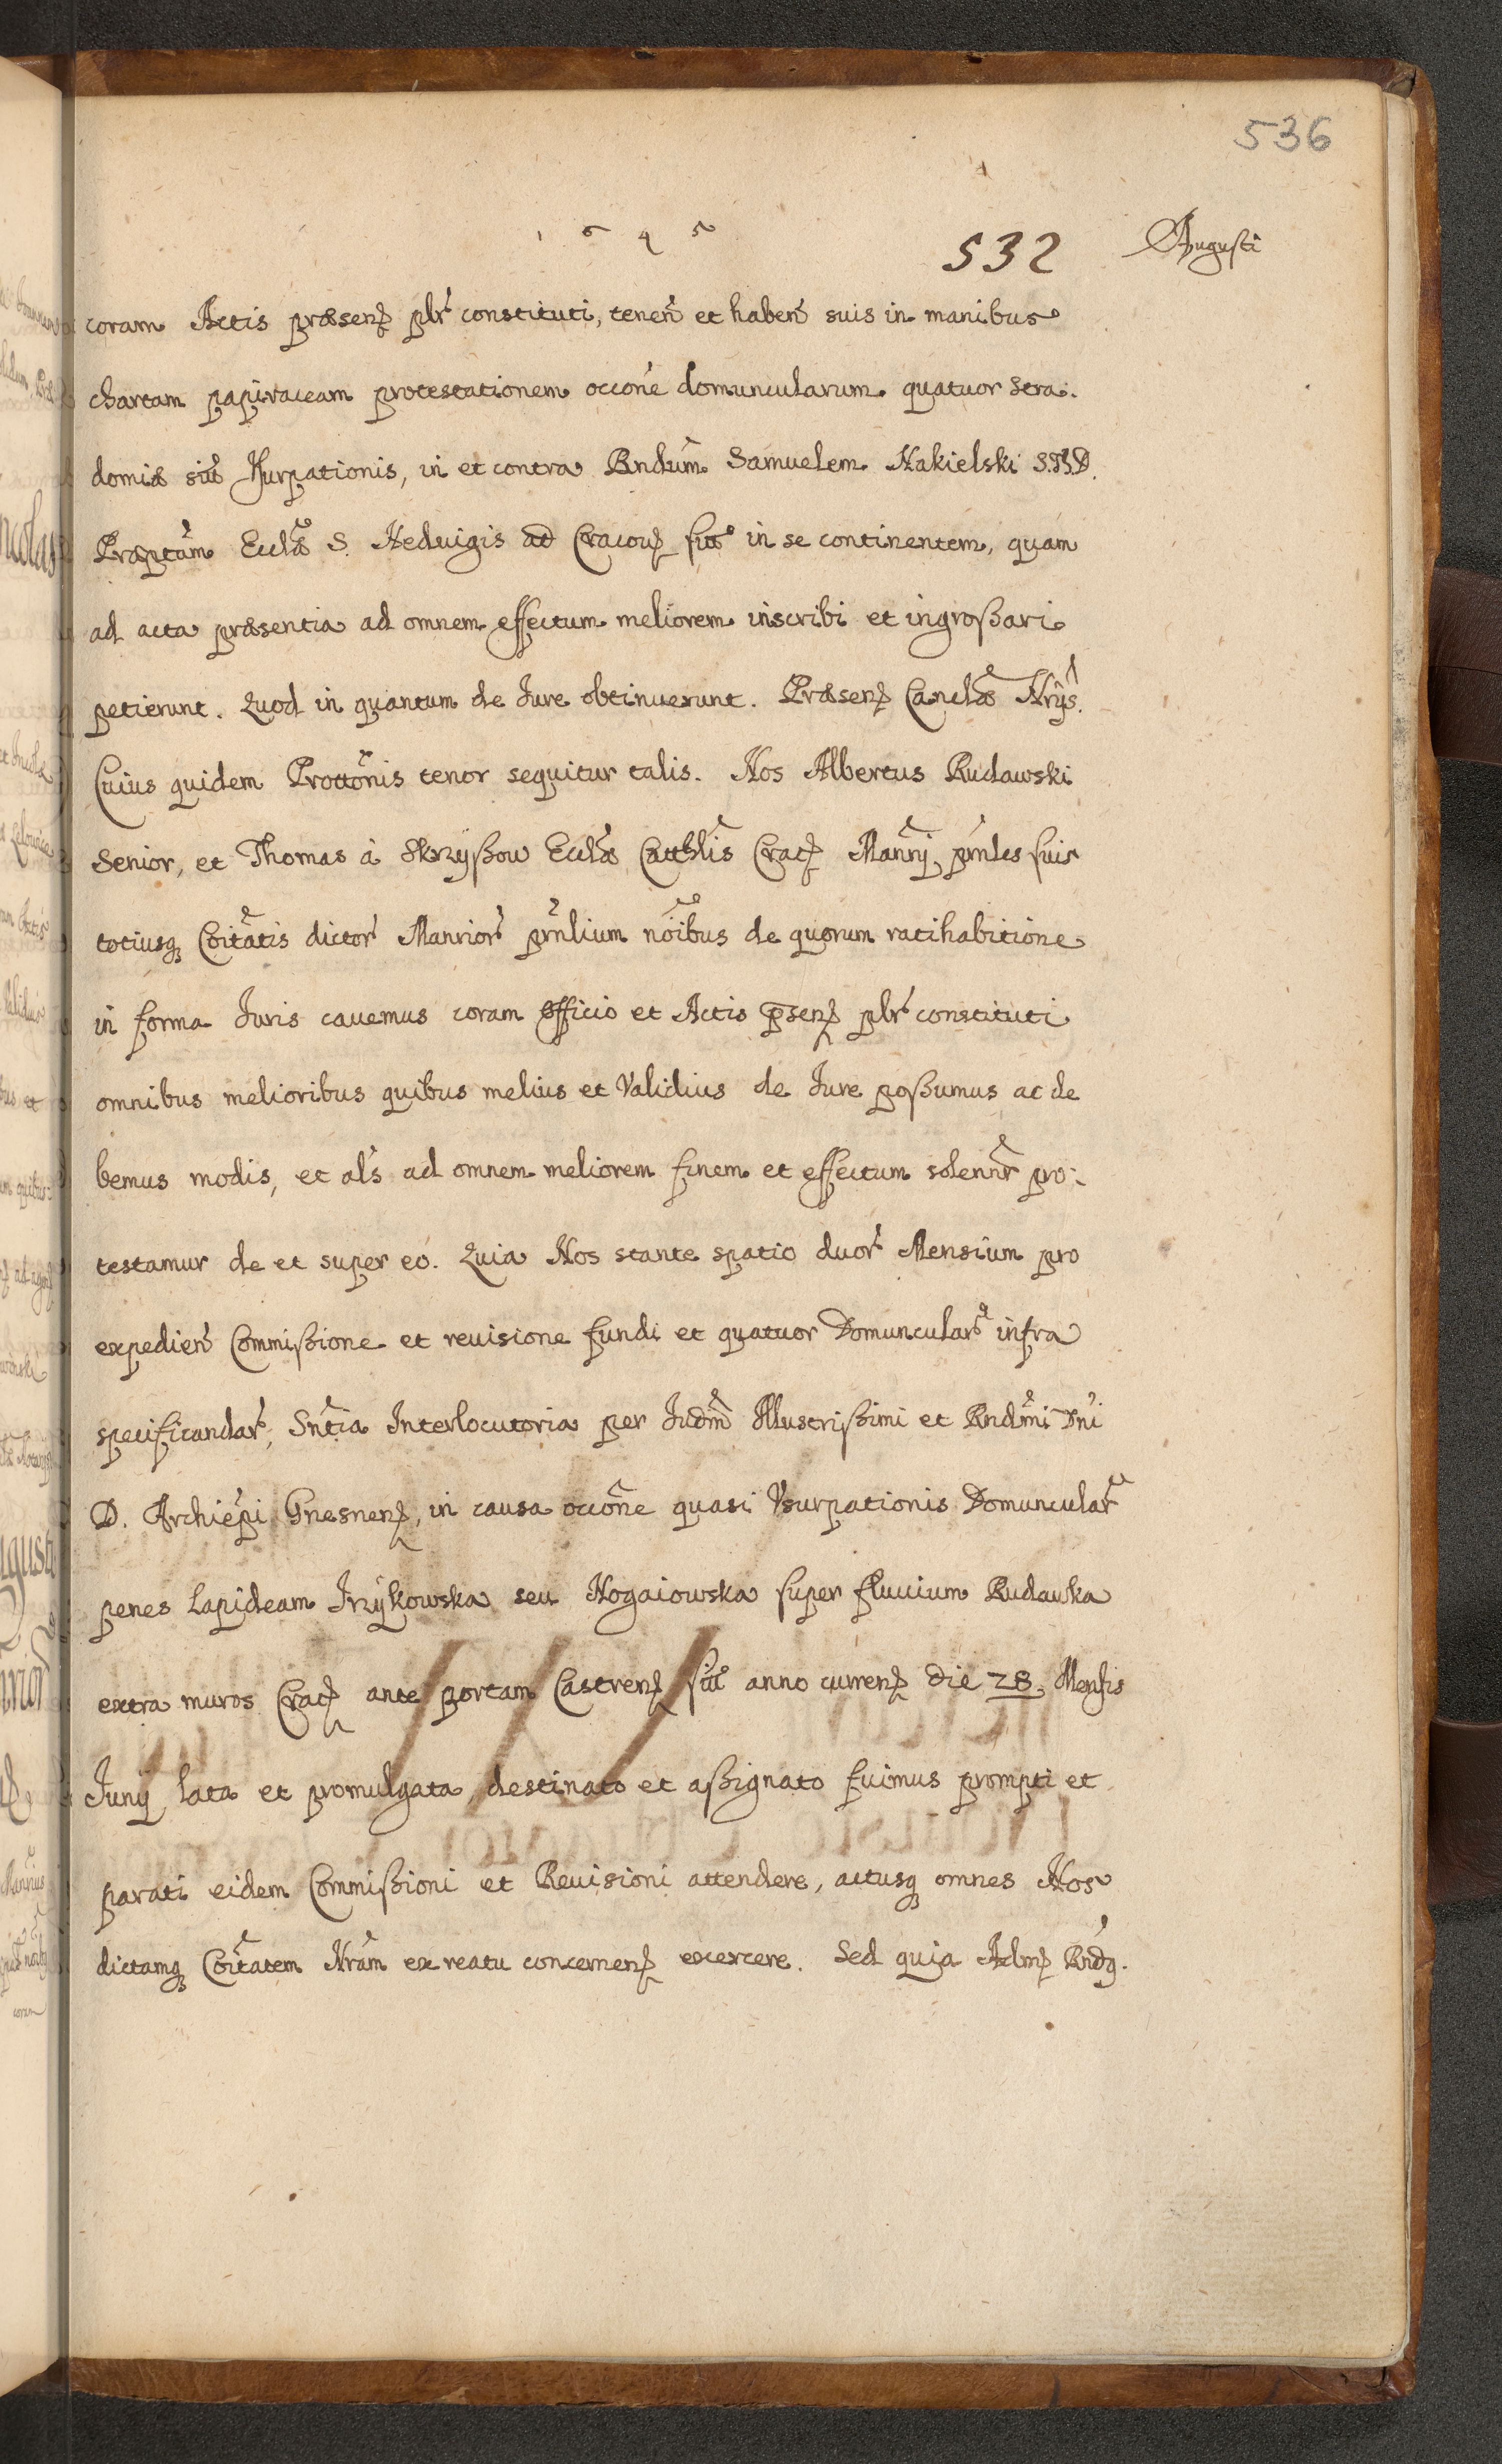 536
1645 532 Augusti
coram Actis præsenꝭ plr̃ constituti, tenen̄ et haben̄ suis in manibus
chartam papiraceam protestationem occõne domuncularum quatuor Stra-
domiæ sit̃ Vsurpationis, in et contra Rndum̃ Samuelem Nakielski S.T.D.
Præptãm Ecclæ S. Heduigis ad Cracouꝭ sit̃ in se continentem, quam
ad acta præsentia ad omnem effectum meliorem inscribi et ingroßari
petierunt. Quod in quantum de Jure obtinuerunt. Præsenꝭ Canclæ Nrijs.
Cuius quidem Prottõnis tenor sequitur talis. Nos Albertus Rudawski
Senior, et Thomas à Skrzyßow Ecclæ Cathlis Cracꝭ Manrij pñnles suis
totiusq̃ Cõitatis dictor̃ Manrior̃ pñnlium nõibus de quorum ratihabitione
in forma Juris cauemus coram Officio et Actis p̃senꝭ plr̃ constituti
omnibus melioribus quibus melius et Validius de Jure poßumus ac de
bemus modis, et als̃ ad omnem meliorem finem et effectum solennr̃ pro-
testamur de et super eo. Quia Nos stante spatio duor̃ Mensium pro
expedien̄ Commißione et reuisione fundi et quatuor Domuncular̃ infra
specificandar̃, Sñtia Interlocutoria per Judm̃ Illustrißimi et Rndm̃i Dñi
D. Archiep̃i Gnesnenꝭ, in causa occõne quasi Vsurpationis Domuncular̃
penes Lapideam Irzykowska seu Nogaiowska super fluuium Rudawka
extra muros Cracꝭ ante portam Castrenꝭ sit̃ anno currenꝭ die 28. Mensis
Junij lata et promulgata, destinato et aßignato fuimus prompti et
parati eidem Commißioni et Reuisioni attendere, actusq̃ omnes Nos
dictamq̃ Cõitatem Nrãm ex reatu concernenꝭ excercere. Sed quia Admꝭ Rndꝯ.